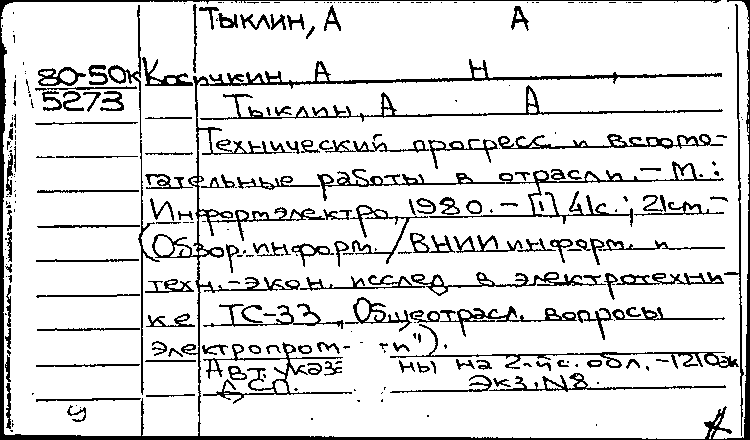 Тыклин, А А
80-50к Косичкин, А Н
5273 Тыклин, А А
Технический прогресс и вспомо-
гательные работы в отрасли. - М.:
Информэлектро, 1980. - [1], 41с.; 21см. -
(Обзор. информ. / ВНИИ информ. и
техн.-экон. исслед. в электротехни-
ке ТС-33, Общеотрасл. вопросы
электропром- ти").
Авт. указ ны на 2-й с. обл. - 1210эк
ДСП. Экз. N8.